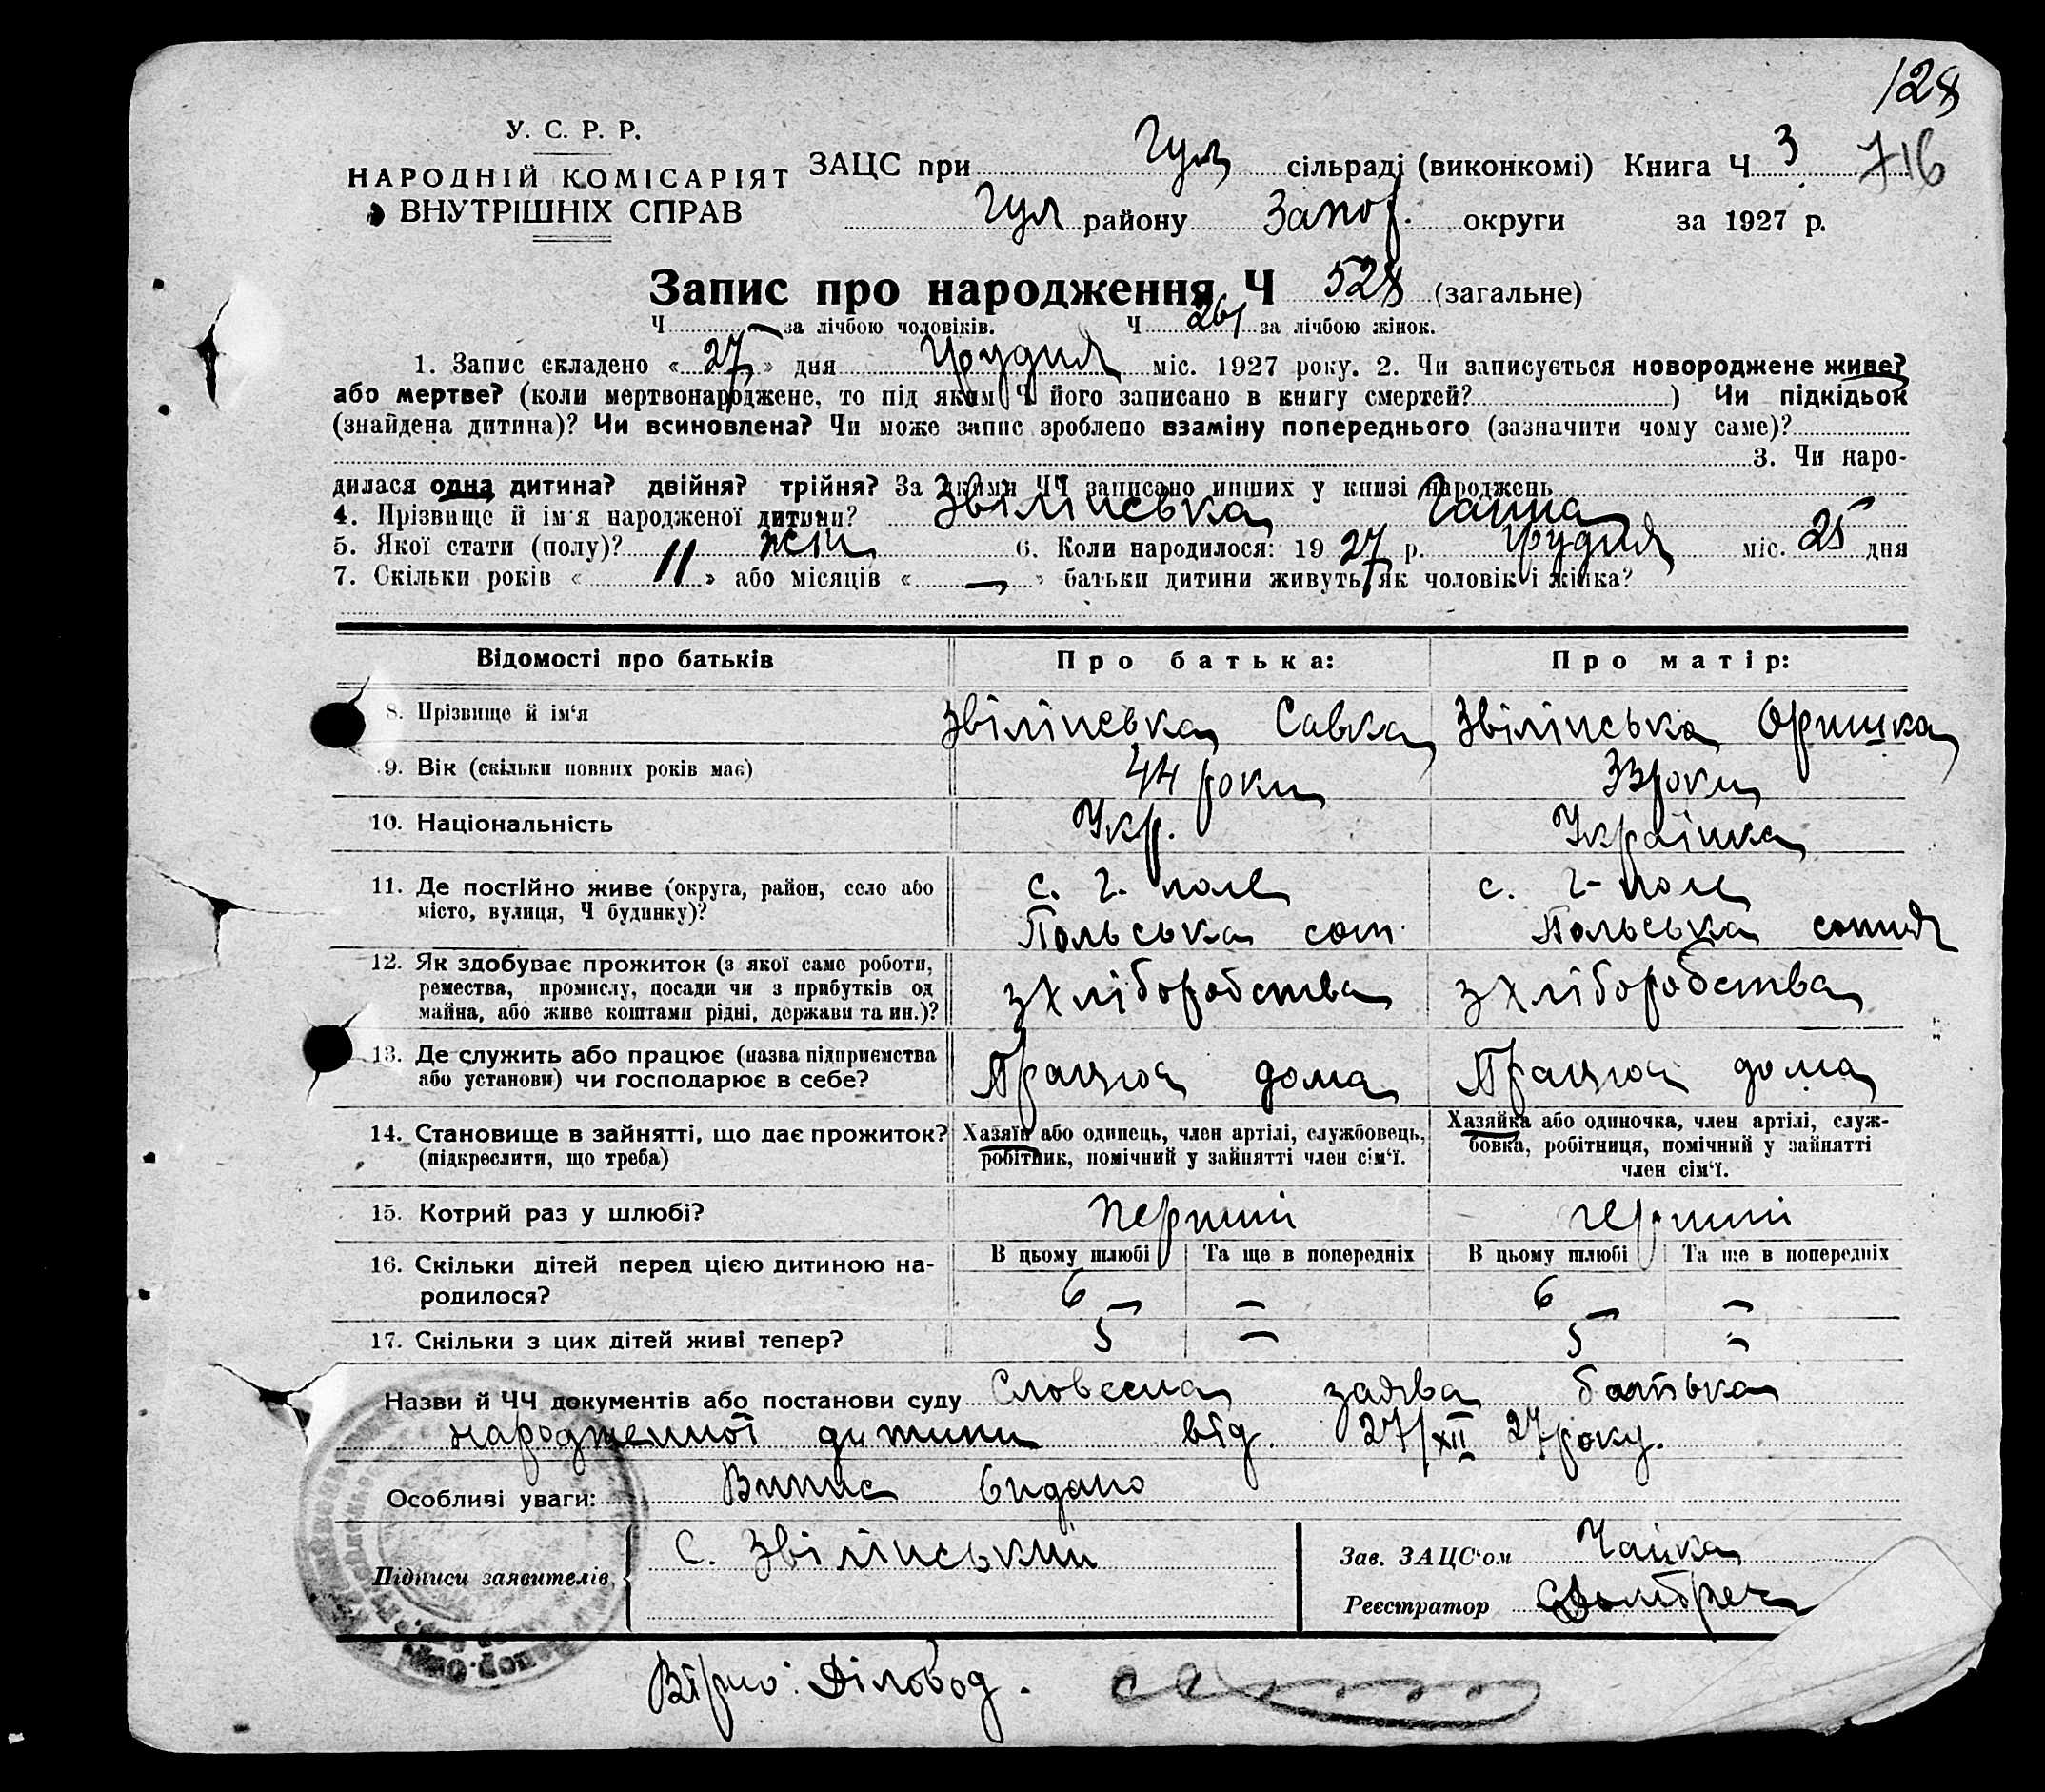 128
У. С. Р. Р.
НАРОДНІЙ КОМІСАРІЯТ
ВНУТРІШНІХ СПРАВ
ЗАЦС при Гул сільраді (виконкомі) Книга Ч 3 716
Гул району Запор. округи за 1927 р.
Запис про народження Ч 528 (загальне)
Ч — за лічбою чоловіків. Ч 261 за лічбою жінок.
1. Запис складено «27» дня Грудня міс. 1927 року. 2. Чи записується новороджене живе?
або мертве? (коли мертвонароджене, то під яким Ч його записано в книгу смертей? ) Чи підкідьок
(знайдена дитина)? Чи всиновлена? Чи може запис зроблено взаміну попереднього (зазначити чому саме)?
3. Чи наро-
дилася одна дитина? двійня? трійня? За якими ЧЧ записано инших у книзі народжень
4. Прізвище й ім'я народженої дитини? Звілінська Ганна
5. Якої стати (полу)? жін 6. Коли народилося: 1927 р. Грудня міс. 25 дня
7. Скільки років «11» або місяців «—» батьки дитини живуть як чоловік і жінка?
Відомості про батьків Про батька: Про матір:
8. Прізвище й ім'я Звілінська Савка Звілінська Оришка
9. Вік (скільки повних років має) 44 роки 33 роки
10. Національність Укр. Українка
11. Де постійно живе (округа, район, село або с. г. поле с. г-поле
місто, вулиця, Ч будинку)? Польська сот. Польська сотня
12. Як здобуває прожиток (з якої саме роботи,
ремества, промислу, посади чи з прибутків од з хліборобства з хліборобства
майна, або живе коштами рідні, держави та ин.)?
13. Де служить або працює (назва підприємства
або установи) чи господарює в себе? Працює дома Працює дома
14. Становище в зайнятті, що дає прожиток? Хазяїн або одинець, член артілі, службовець, Хазяйка або одиночка, член артілі, служ-
(підкреслити, що треба) робітник, помічний у зайнятті член сім'ї. бовка, робітниця, помічний у зайнятті
член сім'ї.
15. Котрий раз у шлюбі? перший перший
В цьому шлюбі Та ще в попередніх В цьому шлюбі Та ще в попередніх
16. Скільки дітей перед цією дитиною на-
родилося? 6 — 6 —
17. Скільки з цих дітей живі тепер? 5 — 5 —
Назви й ЧЧ документів або постанови суду Словесна заява батька
народженної дитини від. 27/XII 27 року.
Особливі уваги: Випис видано
Підписи заявителів, С. Звілінський
Зав. ЗАЦС'ом Чайка
Реєстратор
Вірно: Діловод.